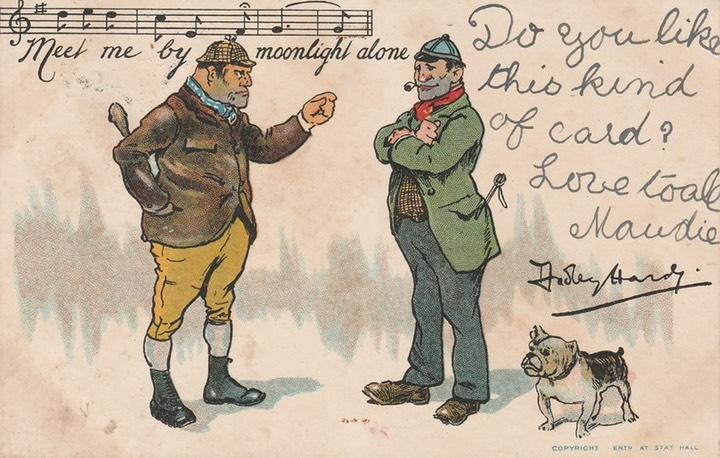 Meet me by moonlight alone
Do you like
this kind
of card?
Love to all
Maudie
Dudley Hardy.
COPYRIGHT ENTD AT STAT HALL.